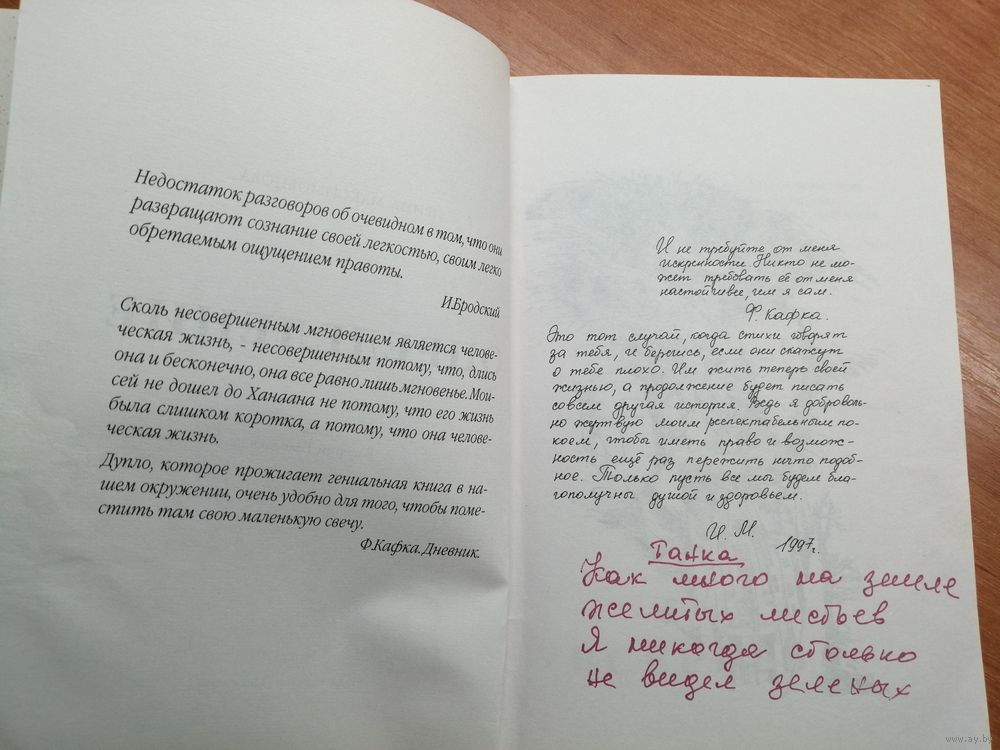 Недостаток разговоров об очевидном в том, что они
развращают сознание своей легкостью, своим легко
обретаемым ощущением правоты.
И.Бродский
Сколь несовершенным мгновением является челове-
ческая жизнь, - несовершенным потому, что, длись
она и бесконечно, она все равно лишь мгновенье. Мои-
сей не дошел до Ханаана не потому, что его жизнь
была слишком коротка, а потому, что она челове-
ческая жизнь.
Дупло, которое прожигает гениальная книга в на-
шем окружении, очень удобно для того, чтобы поме-
стить там свою маленькую свечу.
Ф.Кафка. Дневник.
И не требуйте от меня
искренности. Никто не мо-
жет требовать её от меня
настойчивее, чем я сам.
Ф. Кафка.
Это тот случай, когда стихи говорят
за тебя, и берегись, если они скажут
о тебе плохо. Им жить теперь своей
жизнью, а продолжение будет писать
совсем другая история. Ведь я доброволь-
но жертвую моим респектабельным по-
коем, чтобы иметь право и возмож-
ность ещё раз пережить нечто подоб-
ное. Только пусть все мы будем бла-
гополучны душой и здоровьем.
И. М.
1997г.
Танка
Как много на земле
желтых листьев
Я никогда столько
не видел зеленых
www.ay.by